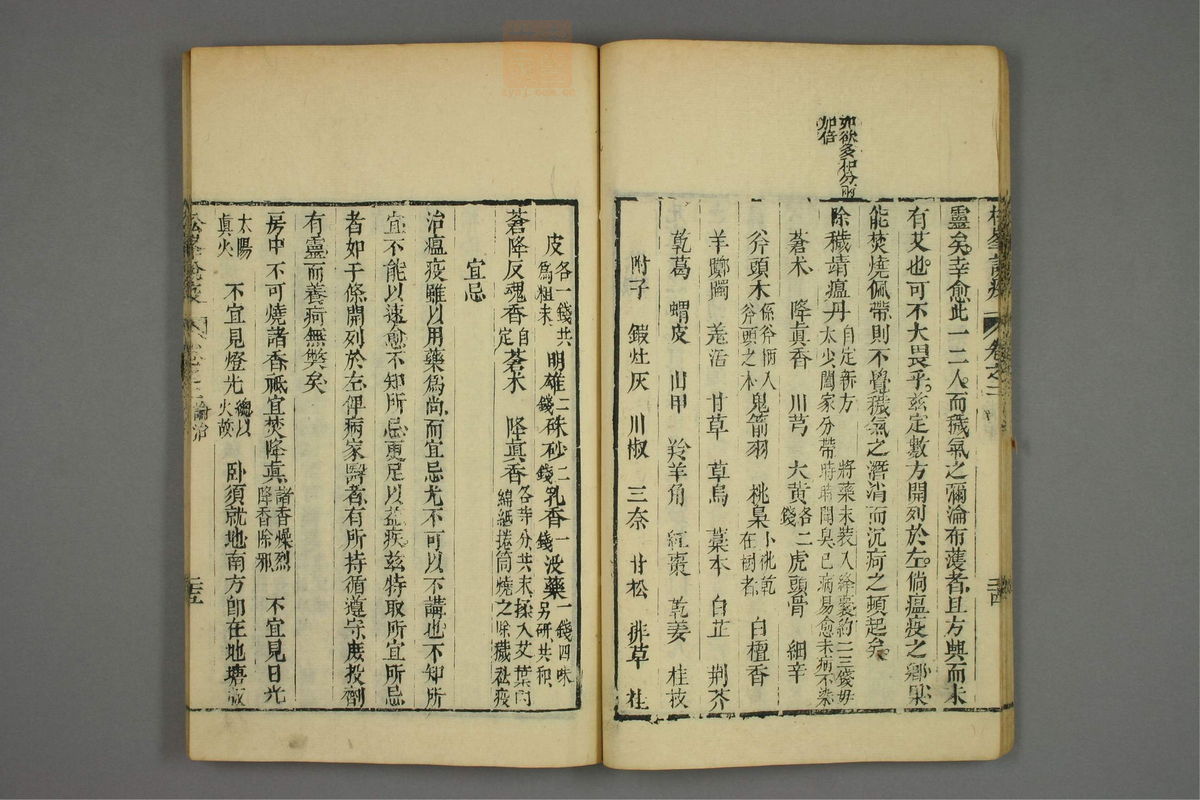 如欲多和分兩
加倍
靈矣幸愈此一二人而穢氣之瀰淪布濩者且方興而未
有艾也可不大畏乎兹定數方開列於左倘瘟疫之鄉果
能焚燒佩帶則不覺穢氣之潛消而沉疴之頓起矣
除穢靖瘟丹 自定新方 將藥末裝入絳囊約二三錢毋
太少闔家分帶時時聞臭已病易愈未病不染
蒼朮 降眞香 川芎 大黃各二錢 虎頭骨 細辛
斧頭木係斧柄入斧頭之木 鬼箭羽 桃梟小桃乾在樹者 白檀香
羊躑躅 羗活 甘草 草烏 藁本 白芷 荆芥
乾葛 蝟皮 山甲 羚羊角 紅棗 乾姜 桂枝
附子 煆灶灰 川椒 三奈 甘松 排草 桂
松峯說疫 卷之二 二十四
皮各一錢共爲粗末 明雄二錢 硃砂二錢 乳香一錢 沒藥一錢四味另研共和
蒼降反魂香自定 蒼朮 降眞香各等分共末揉入艾葉內
綿紙捲筒燒之除穢祛疫
宜忌
治瘟疫雖以用藥爲尚而宜忌尤不可以不講也不知所
宜不能以速愈不知所忌更足以益疾兹特取所宜所忌
者如干條開列於左俾病家醫者有所持循遵守庶投劑
有靈而養疴無獘矣
房中不可燒諸香祗宜焚降眞諸香燥烈降香除邪 不宜見日光
太陽眞火 不宜見燈光總以火故 卧須就地南方卽在地塘板
松峯說疫 卷之二 論治 二十五